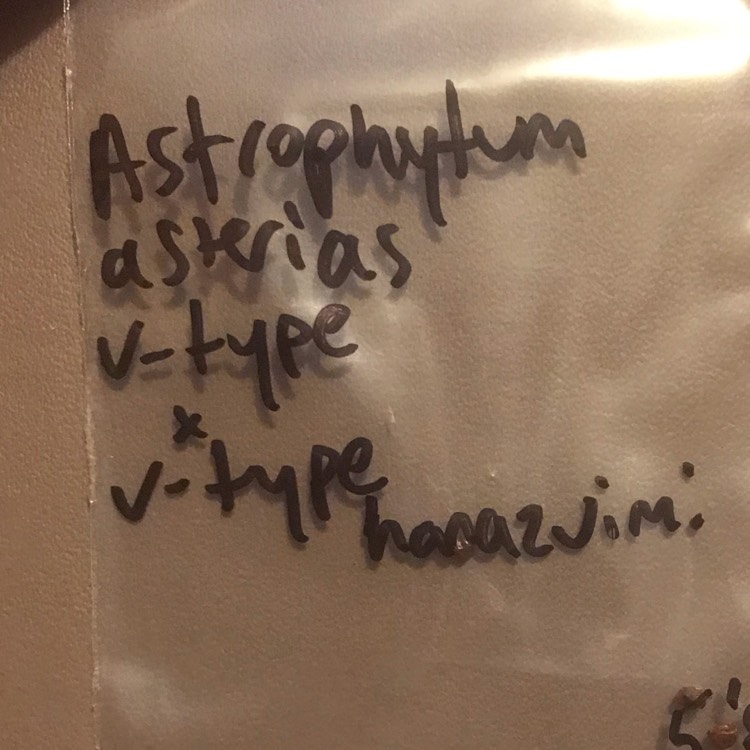 Astrophytum
asterias
v-type
x
v-type
hanazuimi
5's